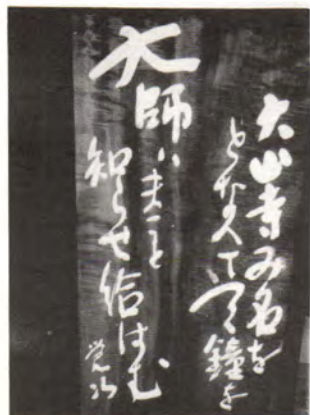 大山寺み名を
となへてつく鐘を
大師ハまこと
知らせ給はむ